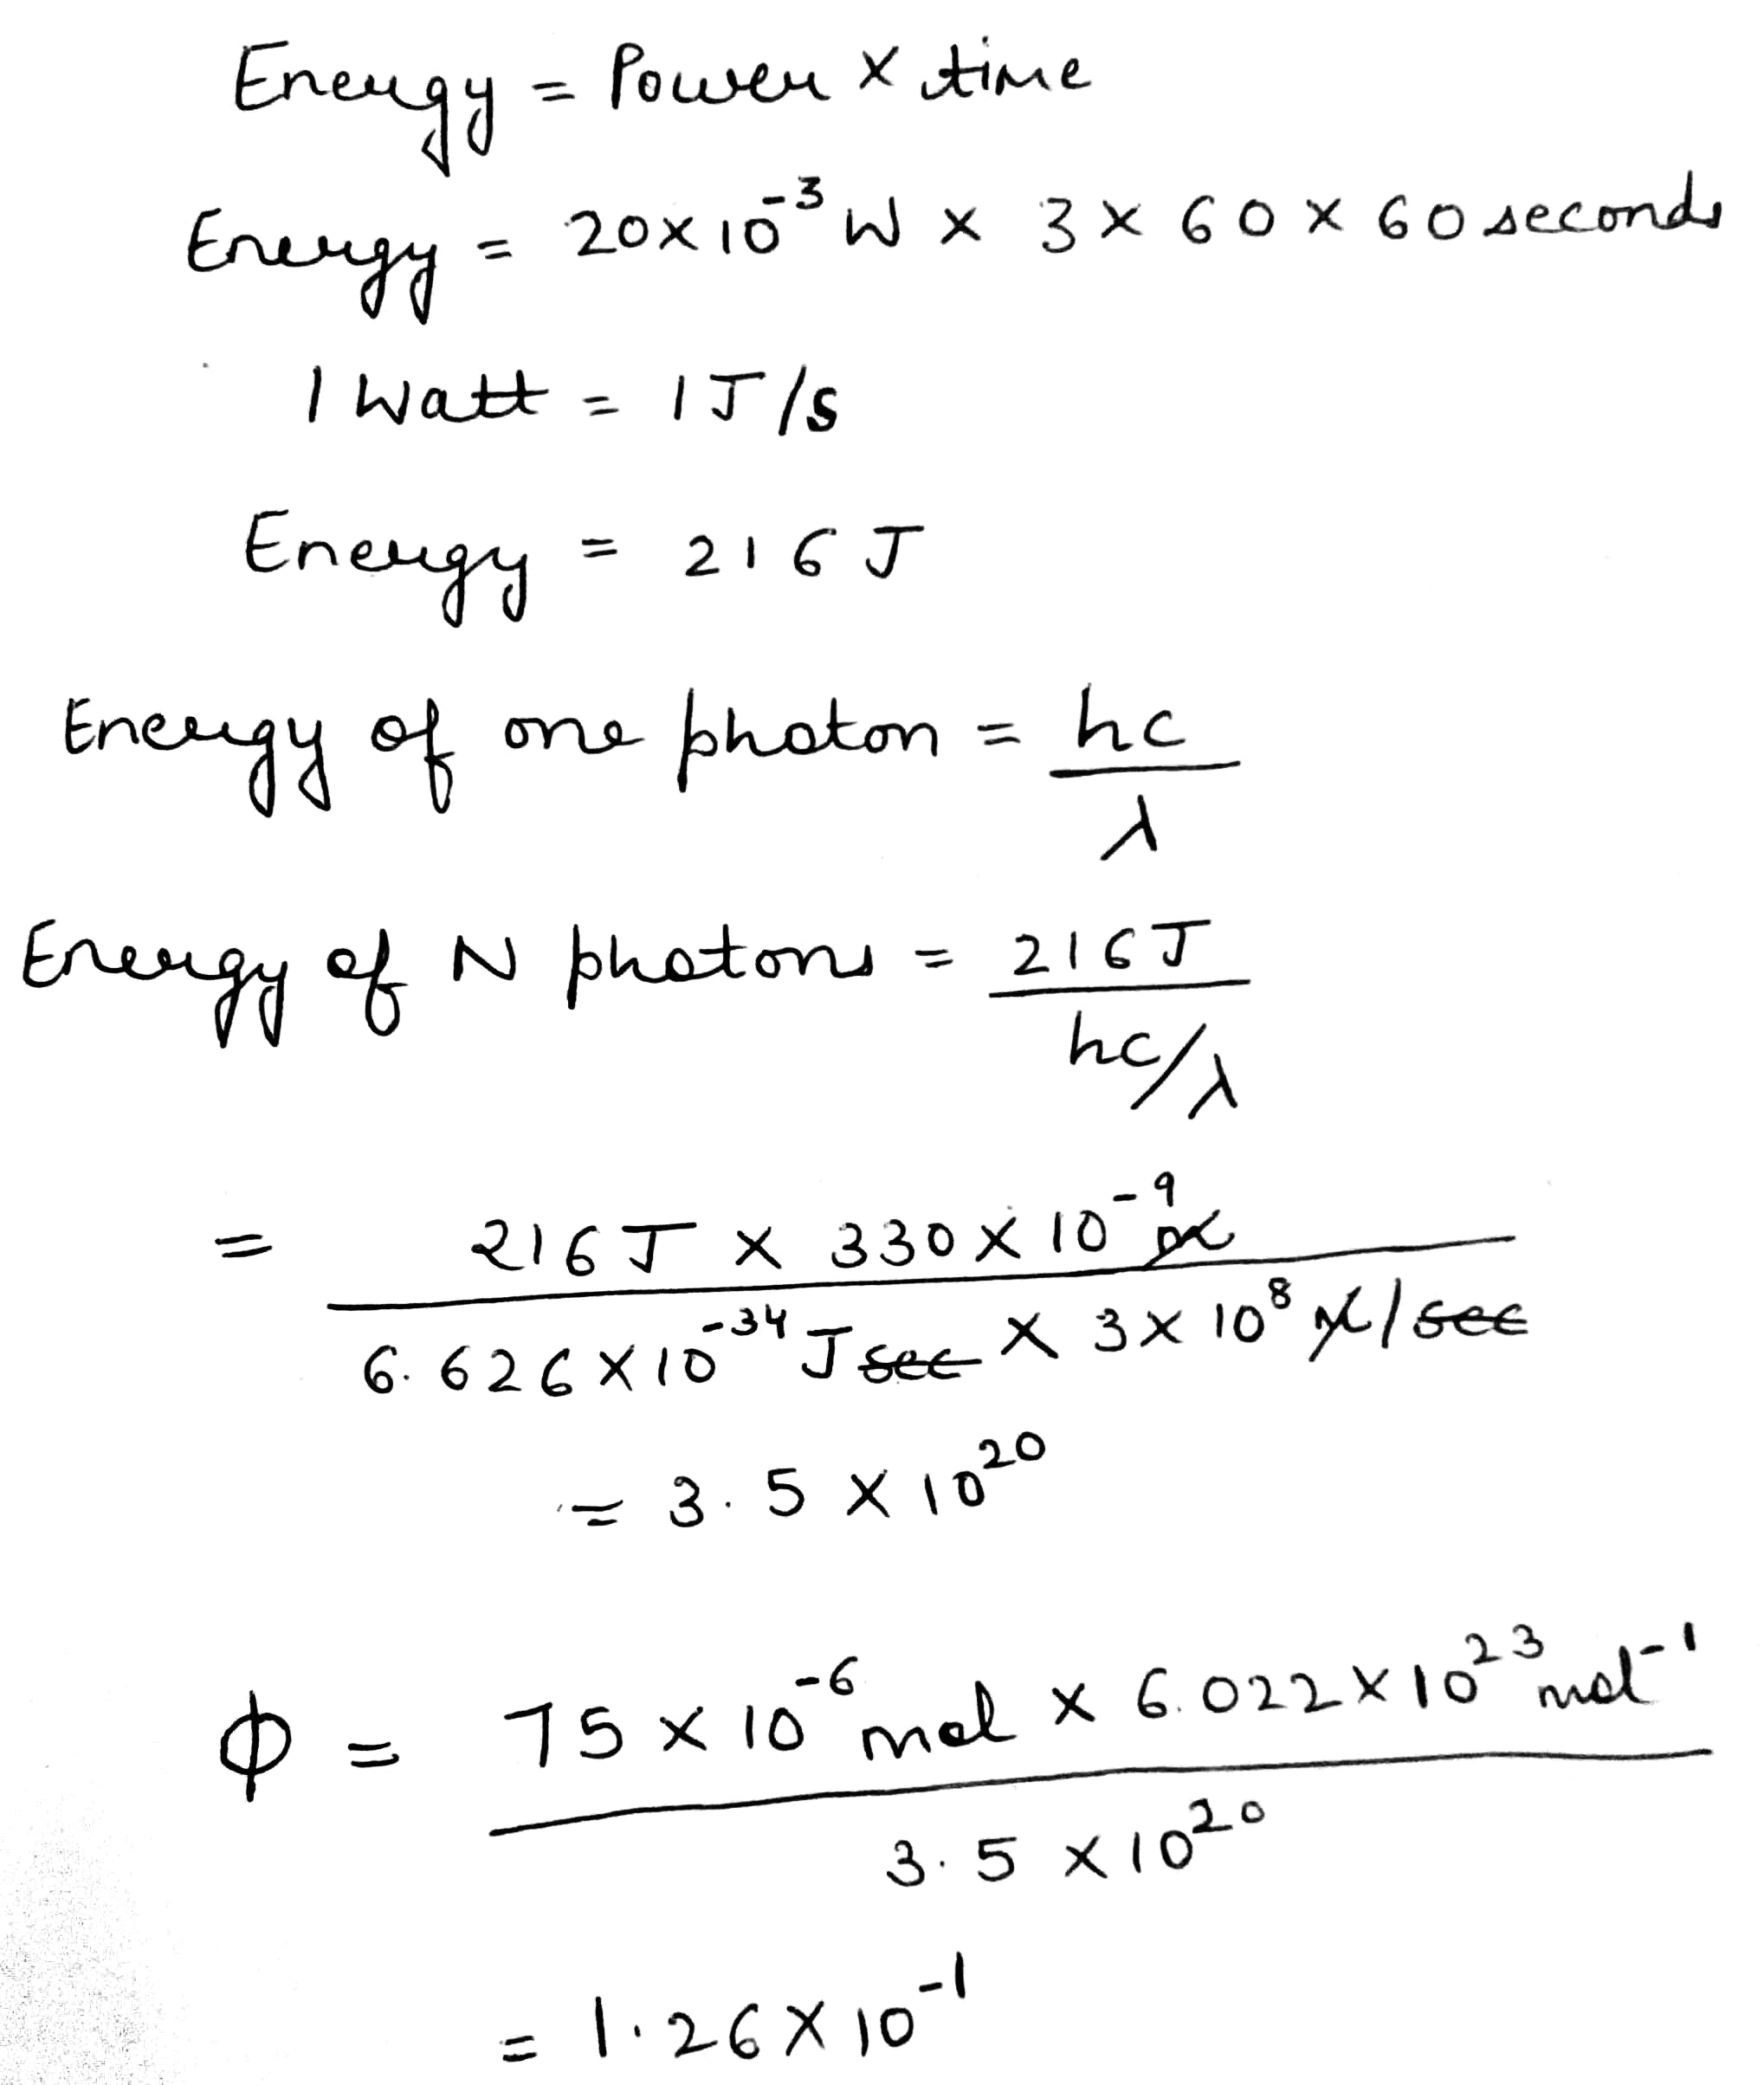 Energy = Power × time
Energy = 20×10⁻³ W × 3 × 60 × 60 seconds
1 Watt = 1 J/s
Energy = 216 J
Energy of one photon = hc/λ
Energy of N photons = 216 J / hc/λ
= 216 J × 330 × 10⁻⁹ m / 6.626 × 10⁻³⁴ J sec × 3 × 10⁸ m/sec
= 3.5 × 10²⁰
ϕ = 75 × 10⁻⁶ mol × 6.022 × 10²³ mol⁻¹ / 3.5 × 10²⁰
= 1.26 × 10⁻¹